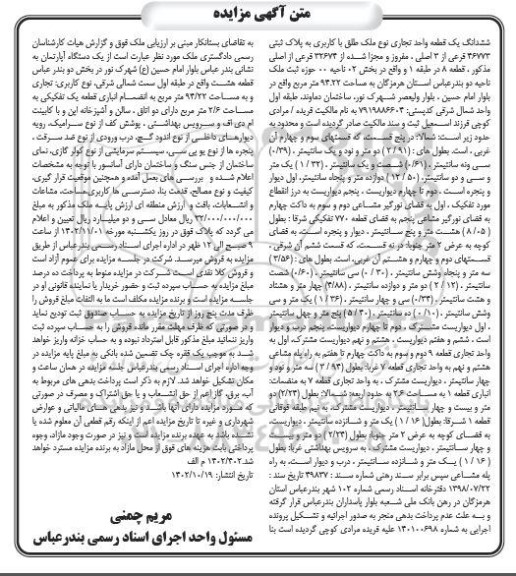 متن آگهی مزایده
ششدانگ یک قطعه واحد تجاری نوع ملک طلق با کاربری به پلاک ثبتی
۴۶۷۷۳ فرعی از ۳ اصلی ، مفروز و مجزا شده از ۳۲۶۷۴ فرعی از اصلی
مذکور ، قطعه ۸ در طبقه ۱ و واقع در بخش ۰۲ ناحیه ۰۰ حوزه ثبت ملک
ناحیه دو بندرعباس استان هرمزگان به مساحت ۹۴/۲۲ متر مربع واقع در
بلوار امام حسین ، بلوار ولیعصر شهرک نور، ساختمان دماوند، طبقه اول
واحد شمال شرقی کدپستی: ۷۹۱۹۸۸۸۶۰۳ به نام مالکیت فریده / مرادی
کوچی فرزند اسمعیل ثبت و سند مالکیت صادر گردیده است و محدود به
حدود زیر است: شمالا: در پنج قسمت، که قسمتهای سوم و چهارم آن
غربی ، است بطول های : (۲/۹۱) دو متر و نود و یک سانتیمتر ، (۰/۳۹)
سی ونه سانتیمتر، (۰/۶۱) شصت و یک سانتیمتر ، (۱/۳۲) یک متر
و سی و دو سانتیمتر، (۱۲/۵۰) دوازده متر و پنجاه سانتیمتر، اول دیوار
و پنجره است دوم تا چهارم دیواریست ، پنجم دیواریست به درز انقطاع
مورد تفکیک ، اول به فضای نورگیر مشاعی دوم و سوم به داکت چهارم
به فضای نورگیر مشاعی پنجم به فضای قطعه ۷۷۰ تفکیکی شرقا : بطول
(۸/۰۵) هشت متر و پنج سانتیمتر ، دیوار و پنجره است، به فضای
کوچه به عرض ۲ متر جنوبا: در نه قسمت، که قسمت ششم آن شرقی ،
قسمتهای دوم و چهارم و هشتم آن غربی، است. بطول های : (۳/۵۶)
سه متر و پنجاه وشش سانتیمتر ، (۰/۳۰) سی سانتیمتر، (۰/۶۰) شصت
سانتیمتر ، (۲/۱۲) دو متر و دوازده سانتیمتر، (۴/۸۸) چهار متر و هشتاد
و هشت سانتیمتر ، (۰/۳۴) سی و چهار سانتیمتر ، (۱/۳۶) یک متر و سی
وشش سانتیمتر، (۰/۱۰) ده سانتیمتر ، (۵/۴۰) پنج متر و چهل سانتیمتر
، اول دیواریست مشترک ، دوم تا چهارم دیواریست، پنجم درب و دیوار
است ، ششم و هفتم دیواریست ، هشتم و نهم دیواریست مشترک، اول به
واحد تجاری قطعه ۹ دوم و سوم به داکت چهارم تا هفتم به راه پله مشاعی
هشتم و نهم به واحد تجاری قطعه ۷ غربا: بطول (۳/۹۴) سه متر و نود و
چهار سانتیمتر ، دیواریست مشترک ، به واحد تجاری قطعه ۷ به منضمات:
انباری قطعه ۱ به مساحت ۲/۶ به حدود اربعه: شمالا: بطول (۲/۲۴) دو
متر و بیست و چهار سانتیمتر ، دیواریست مشترک، به نیم طبقه فوقانی
قطعه ۱ شرقا: بطول (۱/۱۶) یک متر و شانزده سانتیمتر ، دیواریست،
به فضای کوچه به عرض ۲ متر جنوبا: بطول (۲/۲۴) دو متر و بیست
و چهار سانتیمتر ، دیواریست مشترک، به سرویس بهداشتی غربا: بطول
(۱/۱۶) یک متر و شانزده سانتیمتر ، درب و دیوار است، به راه
پله مشاعی سپس برابر سند رهنی شماره سند : ۴۹۸۳۷ تاریخ سند :
۱۳۹۸/۰۷/۲۲ دفترخانه اسناد رسمی شماره ۱۰۲ شهر بندرعباس استان
هرمزگان در رهن بانک ملی شعبه بلوار پاسداران بندرعباس قرار گرفته
و به علت عدم پرداخت بدهی منجر به صدور اجرائیه و تشکیل پرونده
اجرایی به شماره ۱۴۰۱۰۰۶۹۸ علیه فریده مرادی کوچی گردیده است بنا
به تقاضای بستانکار مبنی بر ارزیابی ملک فوق و گزارش هیات کارشناسان
رسمی دادگستری ملک مورد نظر عبارت است از یک دستگاه آپارتمان به
نشانی بندر عباس بلوار امام حسین (ع) شهرک نور در بخش دو بندر عباس
قطعه هشت واقع در طبقه اول سمت شمالی شرقی، نوع کاربری: تجاری
و به مساحت ۹۴/۲۲ متر مربع به انضمام انباری قطعه یک تفکیکی به
مساحت ۲/۶ متر مربع دارای دو اتاق ، سالن و آشپزخانه اپن و با کابینت
ام دی اف و سرویس بهداشتی ، پوشش کف از نوع سرامیک، رویه
دیوارهای داخلی از نوع اندود گچ، درب ورودی از نوع ضد سرقت ،
پنجره ها از نوع یو پی سی، سیستم سرمایشی از نوع کولر گازی، نمای
ساختمان از جنس سنگ و ساختمان دارای آسانسور با توجه به مشخصات
اعلام شده و بررسی های بعمل آمده و همچنین موقعیت قرار گیری،
کیفیت و نوع مصالح، قدمت بنا، دسترسی ها کاربری، مساحت، مشاعات
و انشعابات، بافت و ارزش منطقه ای ارزش پایه ملک مذکور به مبلغ
۳۲/۰۰۰/۰۰۰/۰۰۰ ریال معادل سی و دو میلیارد ریال تعیین و اعلام
می گردد که پلاک فوق در روز یکشنبه مورخه ۱۴۰۲/۱۱/۰۱ از ساعت
۹ صبح الی ۱۲ ظهر در اداره اجرای اسناد رسمی بندرعباس از طریق
مزایده به فروش میرسد. شرکت در جلسه مزایده برای عموم آزاد است
و فروش کلا نقدی است شرکت در مزایده منوط به پرداخت ده درصد
مبلغ مزایده به حساب سپرده ثبت و حضور خریدار یا نماینده قانونی او در
جلسه مزایده است و برنده مزایده مکلف است ما به التفات مبلغ فروش را
ظرف مدت پنج روز از تاریخ مزایده به حساب صندوق ثبت تودیع نماید
و در صورتی که ظرف مهلت مقرر مانده فروش را به حساب سپرده ثبت
واریز ننمائید مبلغ مذکور قابل استرداد نبوده و به حساب خزانه واریز خواهد
شد به موجب یک فقره چک تضمین شده بانکی و مبلغ پایه مزایده در
وجه اداره اجرای اسناد رسمی بندرعباس جلسه مزایده در همان ساعت و
مکان تشکیل خواهد شد. لازم به ذکر است پرداخت بدهی های مربوط به
آب، برق، گاز اعم از حق انشعاب و یا حق اشتراک و مصرف در صورتی
که مورد مزایده دارای آنها باشد و نیز بدهی های مالیاتی و عوارض
شهرداری و غیره تا تاریخ مزایده اعم از اینکه رقم قطعی آن معلوم شده یا
نشده باشد به عهده برنده مزایده است و نیز در صورت وجود مازاد، وجوه
پرداختی بابت هزینه های فوق از محل مازاد به برنده مزایده مسترد خواهد
شد.۱۴۰۲/۴۰۲ م الف
تاریخ انتشار: ۱۴۰۲/۱۰/۱۹
مریم چمنی
مسئول واحد اجرای اسناد رسمی بندرعباس